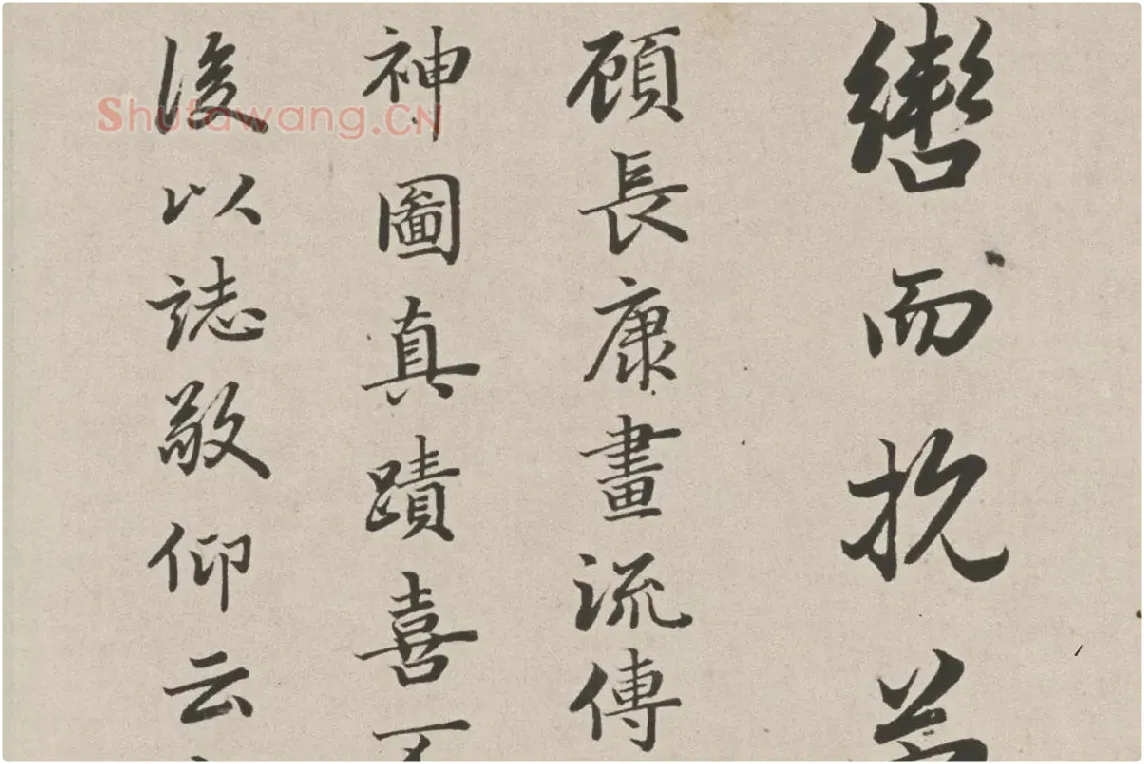 轡而抗
顾長康畫流傳
神圖真蹟喜
後以誌敬仰云
Shufawang.CN